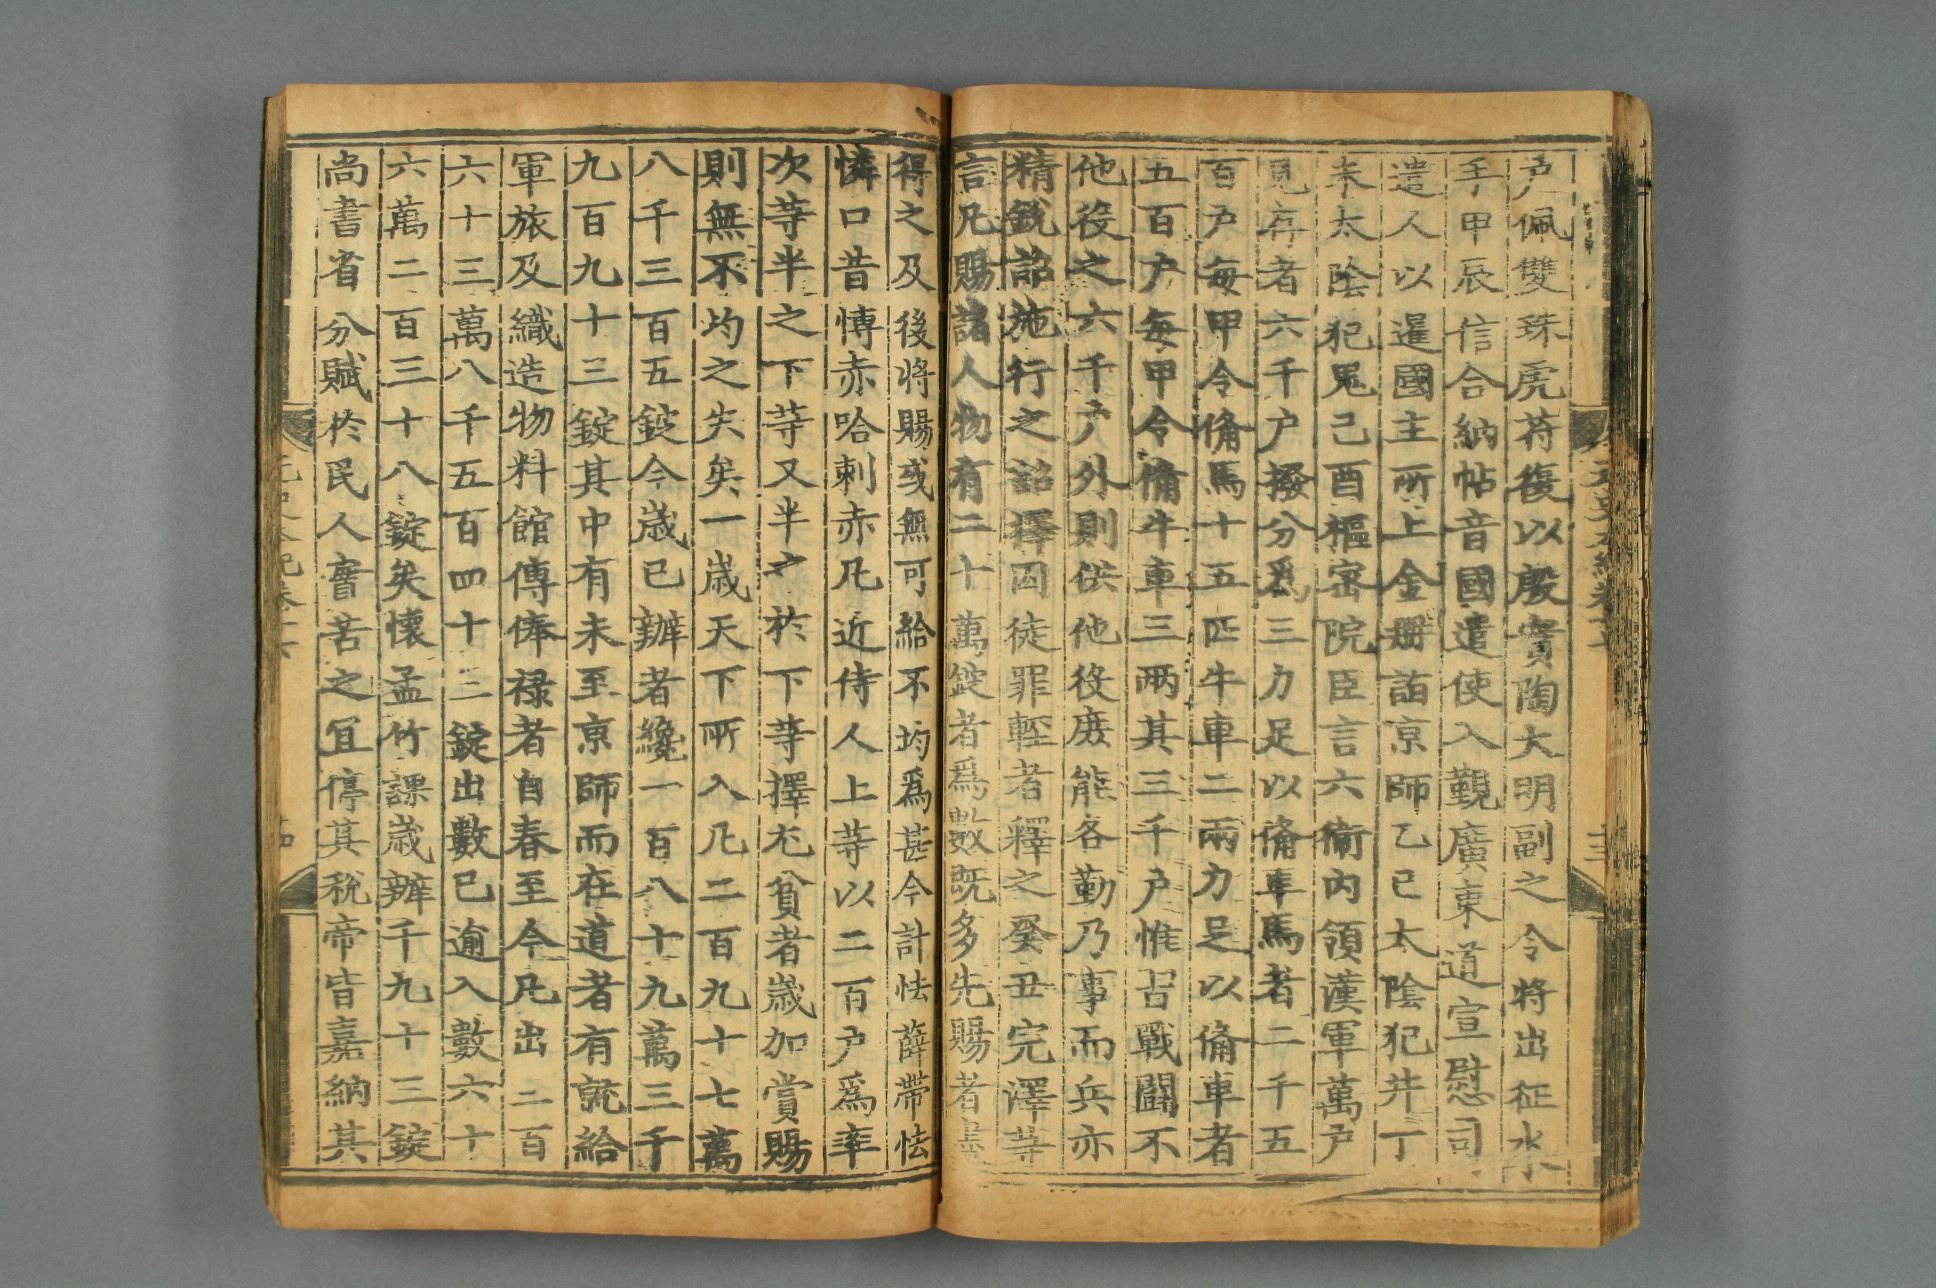 戶佩雙珠虎符復以殷實陶大明副之令將出征水
手甲辰信合納帖音國遣使入覲廣東道宣慰司
遣人以暹國主所上金冊詣京師乙巳太陰犯井丁
未太陰犯鬼己酉樞密院臣言六衛內領漢軍萬戶
見存者六千戶撥分爲三力足以備車馬者二千五
百戶每甲令備馬十五匹牛車二兩力足以備車者
五百戶每甲令備牛車三兩其三千戶惟習戰鬪不
他役之六千戶外則供他役庶能各勤乃事而兵亦
精銳詔施行之詔擇囚徒罪輕者釋之癸丑完澤等
言凡賜諸人物有二十萬錠者爲數既多先賜者盡
得之及後將賜或無可給不均爲甚今計怯薛帶怯
憐口昔博赤哈剌赤凡近侍人上等以二百戶爲率
次等半之下等又半之於下等擇尤貧者歲加賞賜
則無不均之失矣一歲天下所入凡二百九十七萬
八千三百五錠今歲已辦者纔一百八十九萬三千
九百九十三錠其中有未至京師而在道者有就給
軍旅及織造物料館傳俸祿者自春至今凡出二百
六十三萬八千五百四十三錠出數已逾入數六十
六萬二百三十八錠矣懷孟竹課歲辦千九十三錠
尚書省分賦於民人實苦之宜停其稅帝皆嘉納其
元史本紀卷十八
十四